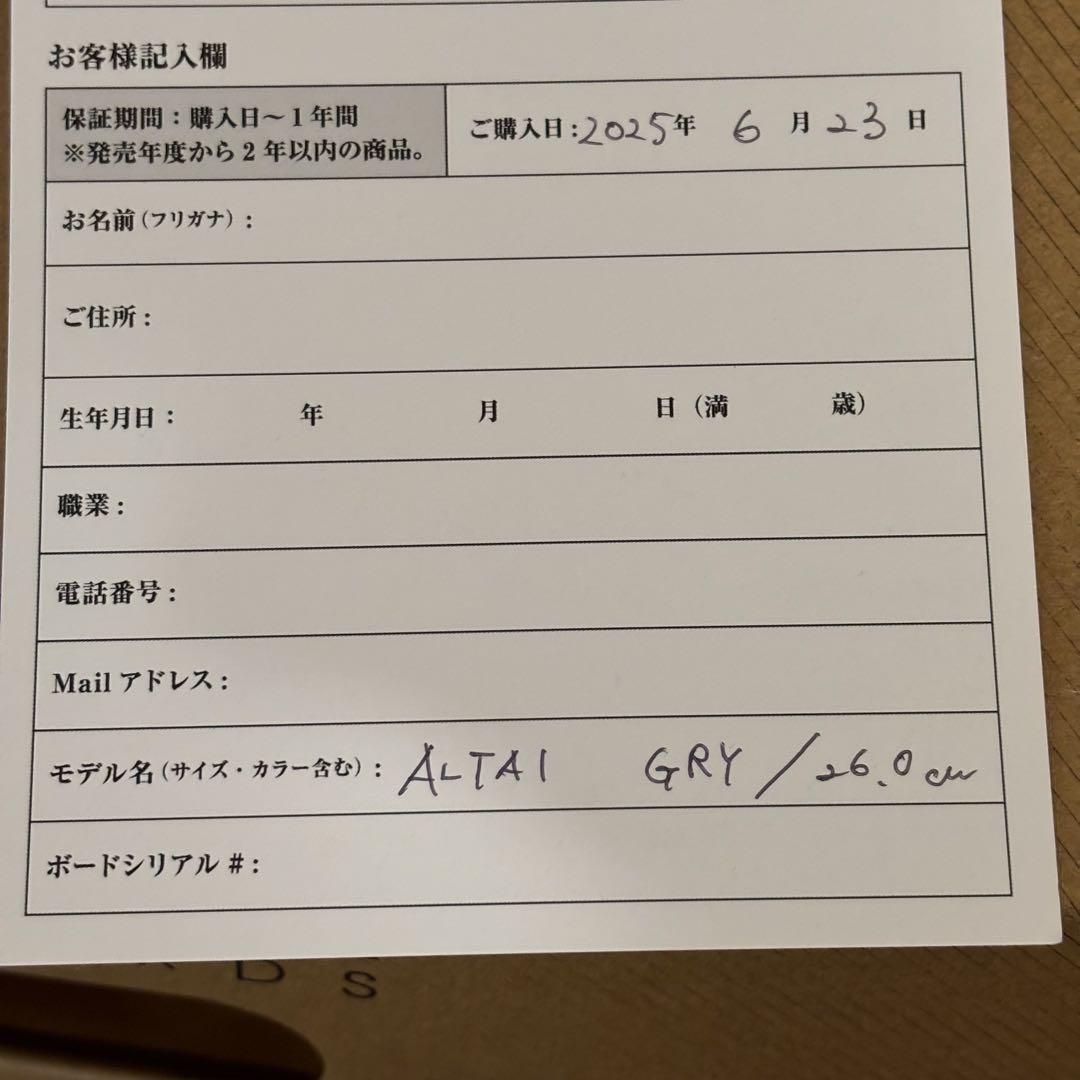 お客様記入欄
保証期間：購入日～1年間
※発売年度から2年以内の商品。
ご購入日：2025年 6 月 23 日
お名前（フリガナ）：
ご住所：
生年月日： 年 月 日（満 歳）
職業：
電話番号：
Mail アドレス：
モデル名（サイズ・カラー含む）：ALTAI GRY / 26.0 cm
ボードシリアル #：